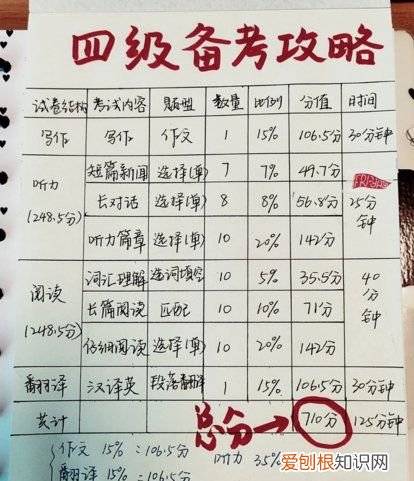 四级备考攻略
试卷结构 考试内容 题型 数量 比例 分值 时间
写作 写作 作文 1 15% 106.5分 30分钟
听力(248.5分) 短篇新闻 选择(单) 7 7% 49.7分 25分钟
长对话 选择(单) 8 8% 56.8分
听力篇章 选择(单) 10 20% 142分
阅读(248.5分) 词汇理解 选词填空 10 5% 35.5分 40分钟
长篇阅读 匹配 10 10% 71分
仔细阅读 选择(单) 10 20% 142分
翻译 汉译英 段落翻译 1 15% 106.5分 30分钟
共计 710分 125分钟
总分→
作文 15% =106.5分 听力 35%
翻译 15% =106.5分
爱刨根知识网